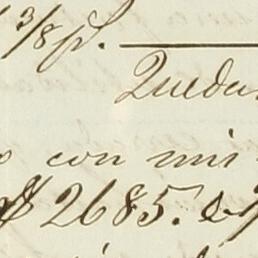 3/8 p.
Queda
con mi
$2685.